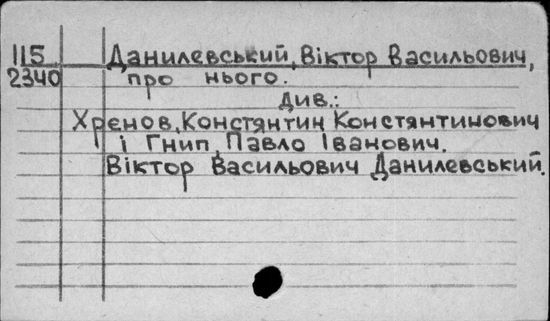 115 Данилевський, Віктор Васильович,
2340 про нього.
Див.:
Хрєнов, Константин Константинович
і Гнип, Павло Іванович.
Віктор Васильович Данилевський.